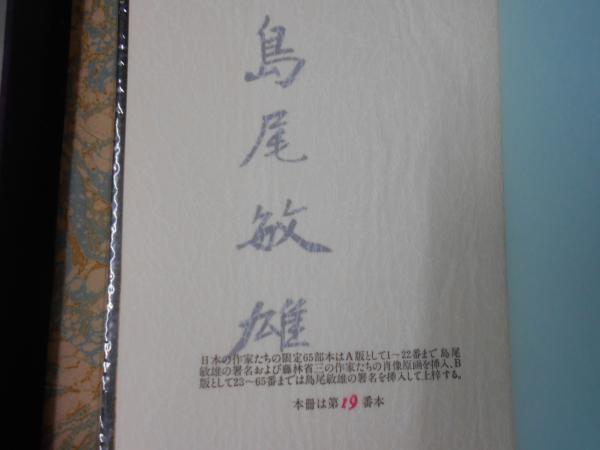 島尾敏雄
日本の作家たちの限定65部本はA版として1～22番まで 島尾
敏雄の署名および藤林省三の作家たちの肖像原画を挿入、B
版として23～65番までは島尾敏雄の署名を挿入して上梓する。
本冊は第19番本